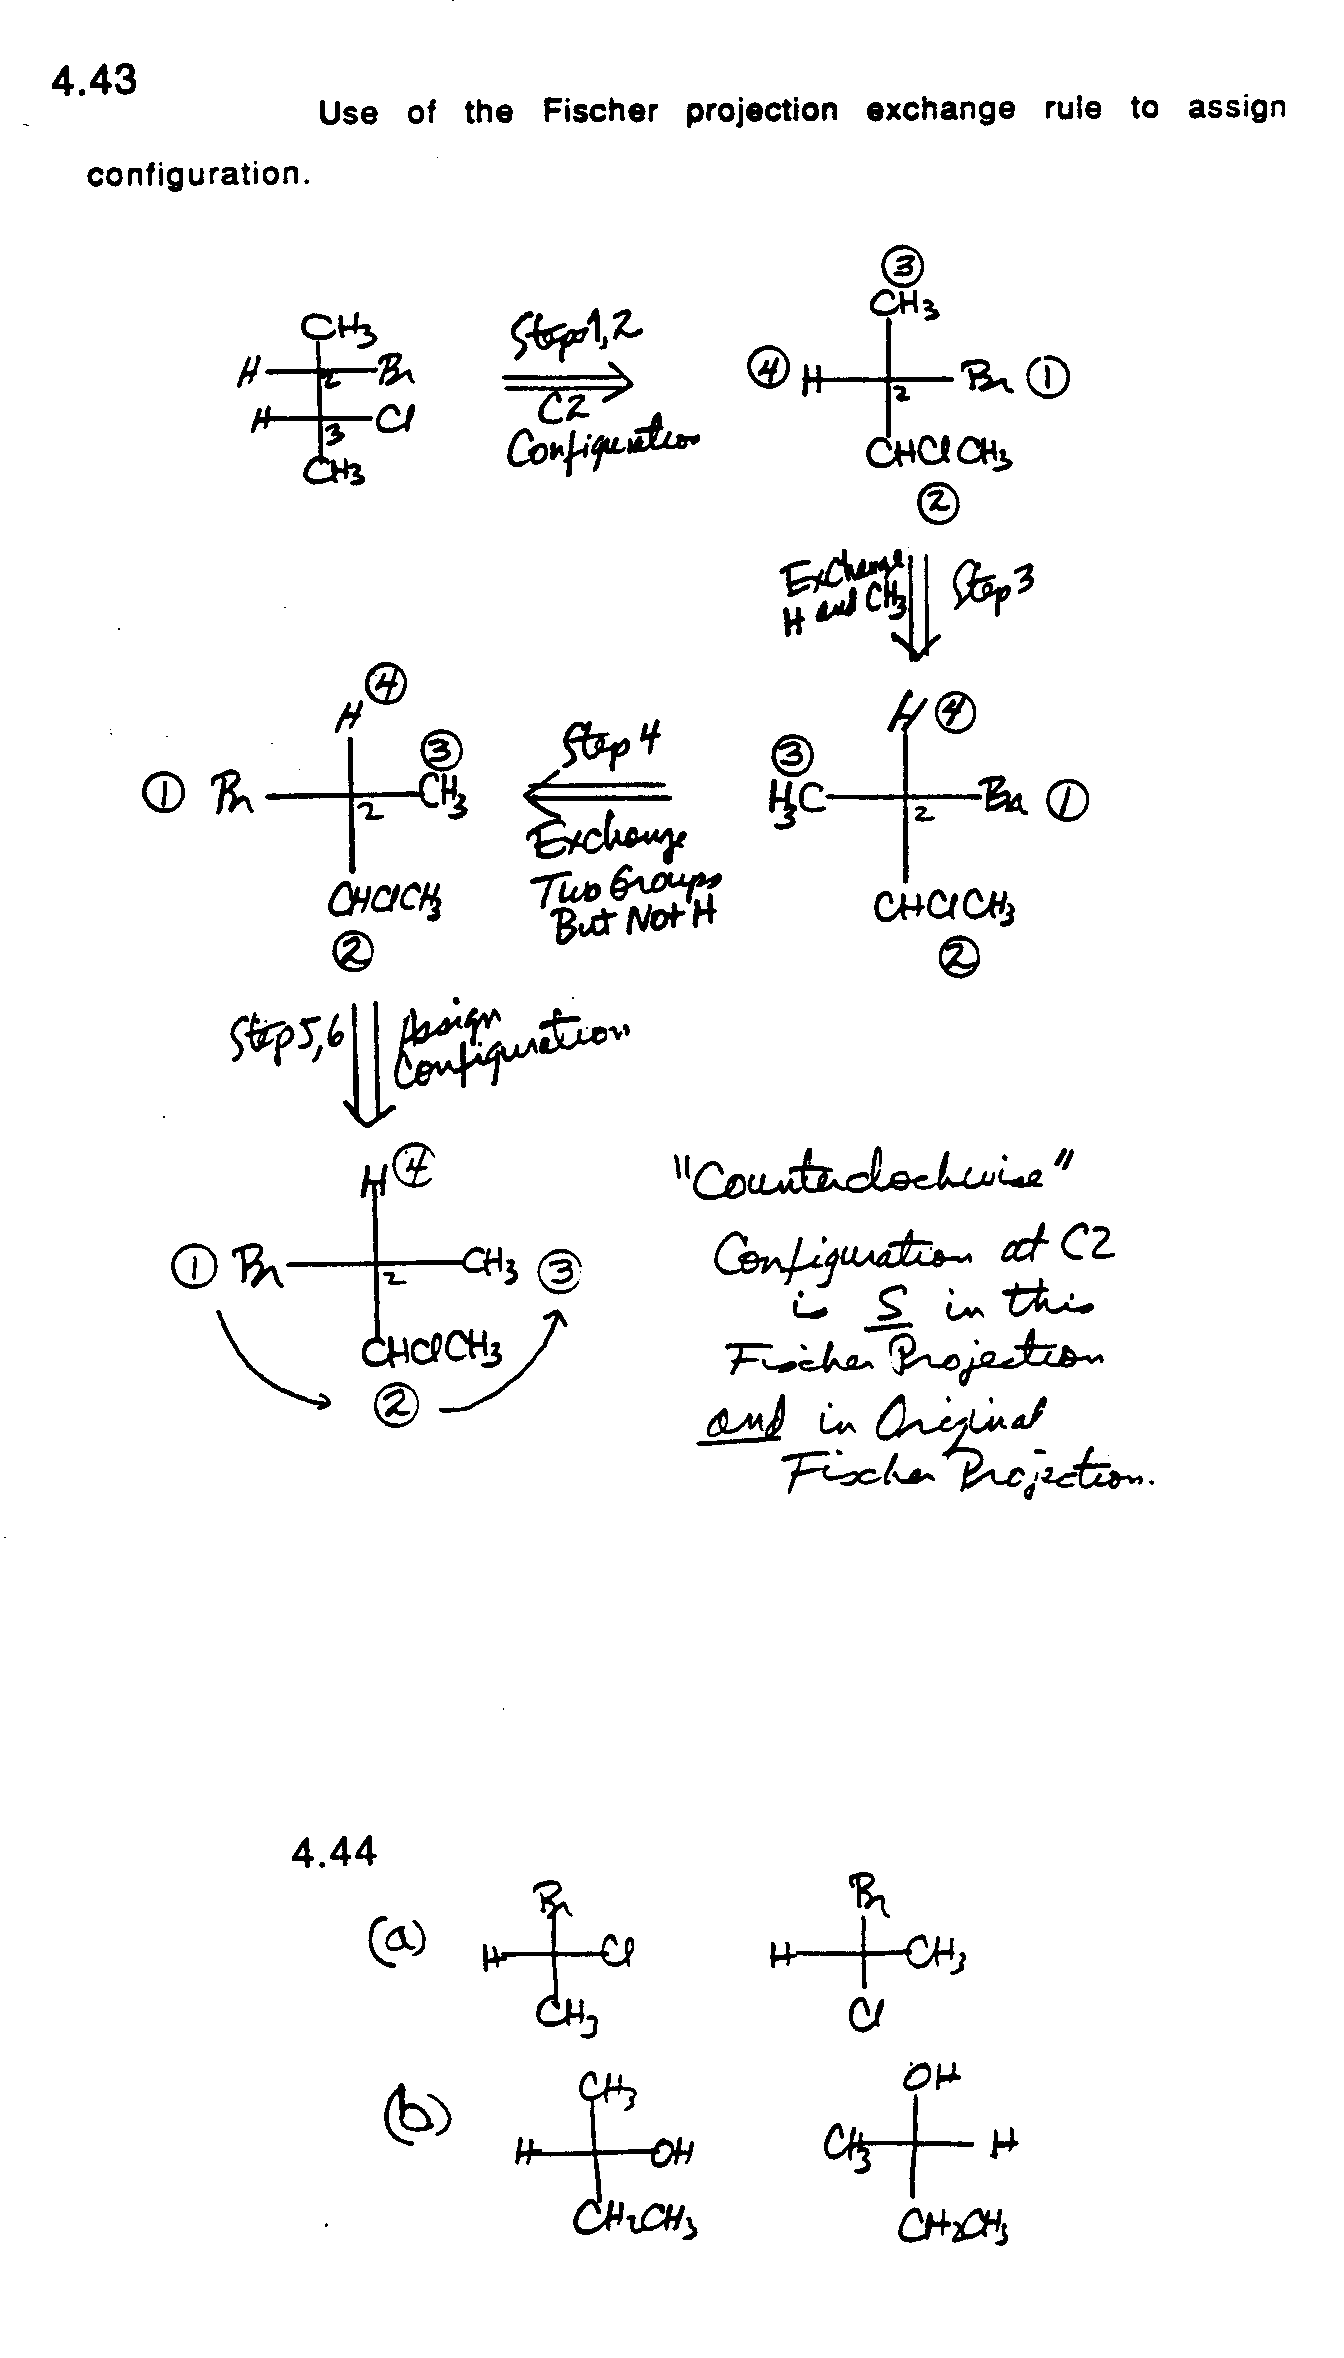 4.43
Use of the Fischer projection exchange rule to assign
configuration.
CH3
H Br
2
H Cl
3
CH3
Steps 1,2
C2
Configuration
③
CH3
④ H Br ①
2
CHClCH3
②
Exchange
H and CH3
Step 3
H ④
③
H3C Br ①
2
CHClCH3
②
Step 4
Exchange
Two Groups
But Not H
④
H
③
① Br CH3
2
CHClCH3
②
Step 5,6
Assign
Configuration
H ④
① Br CH3 ③
2
CHClCH3
②
"Counterclockwise"
Configuration at C2
is S in this
Fischer Projection
and in Original
Fischer Projection.
4.44
(a)
Br
H Cl
CH3
Br
H CH3
Cl
(b)
CH3
H OH
CH2CH3
OH
CH3 H
CH2CH3